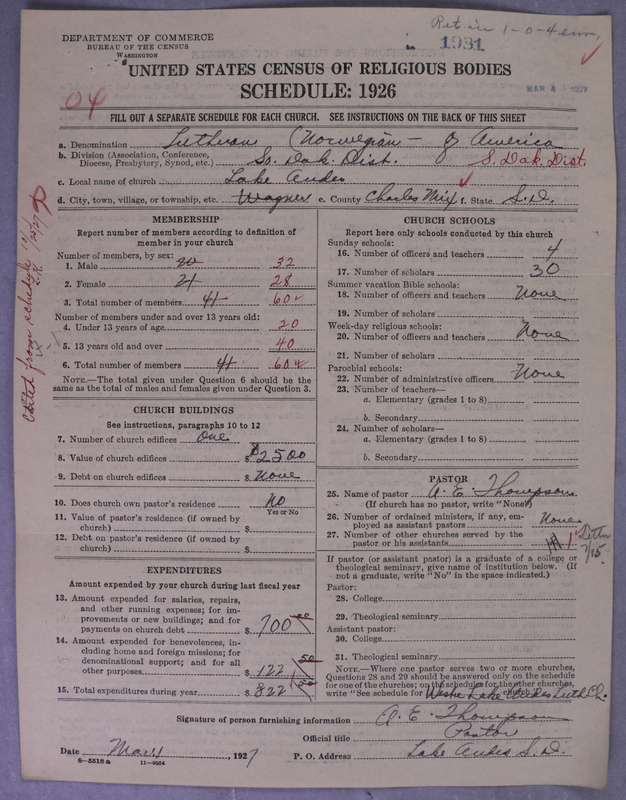 Ret in 1-0-4
1931
DEPARTMENT OF COMMERCE
BUREAU OF THE CENSUS
WASHINGTON
MAR 4 1927
UNITED STATES CENSUS OF RELIGIOUS BODIES
SCHEDULE: 1926
04
FILL OUT A SEPARATE SCHEDULE FOR EACH CHURCH. SEE INSTRUCTIONS ON THE BACK OF THIS SHEET
a. Denomination Lutheran (Norwegian - of America
b. Division (Association, Conference, Diocese, Presbytery, Synod, etc.) So. Dak. Dist. S. Dak. Dist.
c. Local name of church Lake Andes
d. City, town, village, or township, etc. Wagner e. County Charles Mix f. State S.D.
MEMBERSHIP
Report number of members according to definition of
member in your church
Number of members, by sex:
1. Male 20 32
2. Female 21 28
3. Total number of members 41 60
Number of members under and over 13 years old:
4. Under 13 years of age 20
5. 13 years old and over 40
6. Total number of members 41 60
NOTE.—The total given under Question 6 should be
same as the total of males and females given under Question 3.
CHURCH BUILDINGS
See instructions, paragraphs 10 to 12
7. Number of church edifices One
8. Value of church edifices $ 2500
9. Debt on church edifices $ None
10. Does church own pastor's residence No
Yes or No
11. Value of pastor's residence (if owned by
church) $
12. Debt on pastor's residence (if owned by
church) $
EXPENDITURES
Amount expended by your church during last fiscal year
13. Amount expended for salaries, repairs,
and other running expenses; for im-
provements or new buildings; and for
payments on church debt $ 700 00
14. Amount expended for benevolences, in-
cluding home and foreign missions; for
denominational support; and for all
other purposes $ 122 50
15. Total expenditures during year $ 822 50
CHURCH SCHOOLS
Report here only schools conducted by this church
Sunday schools:
16. Number of officers and teachers 4
17. Number of scholars 30
Summer vacation Bible schools:
18. Number of officers and teachers None
19. Number of scholars
Week-day religious schools:
20. Number of officers and teachers None
21. Number of scholars
Parochial schools:
22. Number of administrative officers None
23. Number of teachers—
a. Elementary (grades 1 to 8)
b. Secondary
24. Number of scholars—
a. Elementary (grades 1 to 8)
b. Secondary
PASTOR
25. Name of pastor A. E. Thompson
(If church has no pastor, write "None")
26. Number of ordained ministers, if any, em-
ployed as assistant pastors None
27. Number of other churches served by the
pastor or his assistants 1
If pastor (or assistant pastor) is a graduate of a college or
theological seminary, give name of institution below. (If
not a graduate, write "No" in the space indicated.)
Pastor:
28. College
29. Theological seminary
Assistant pastor:
30. College
31. Theological seminary
NOTE.—Where one pastor serves two or more churches,
Questions 28 and 29 should be answered only on the schedule
for one of the churches; on the schedules for the other churches,
write "See schedule for Lake Andes Luth Ch. church."
Signature of person furnishing information A. E. Thompson
Official title Pastor
Date Mar 1, 1927 P. O. Address Lake Andes S.D.
8—5518 a 11—9054